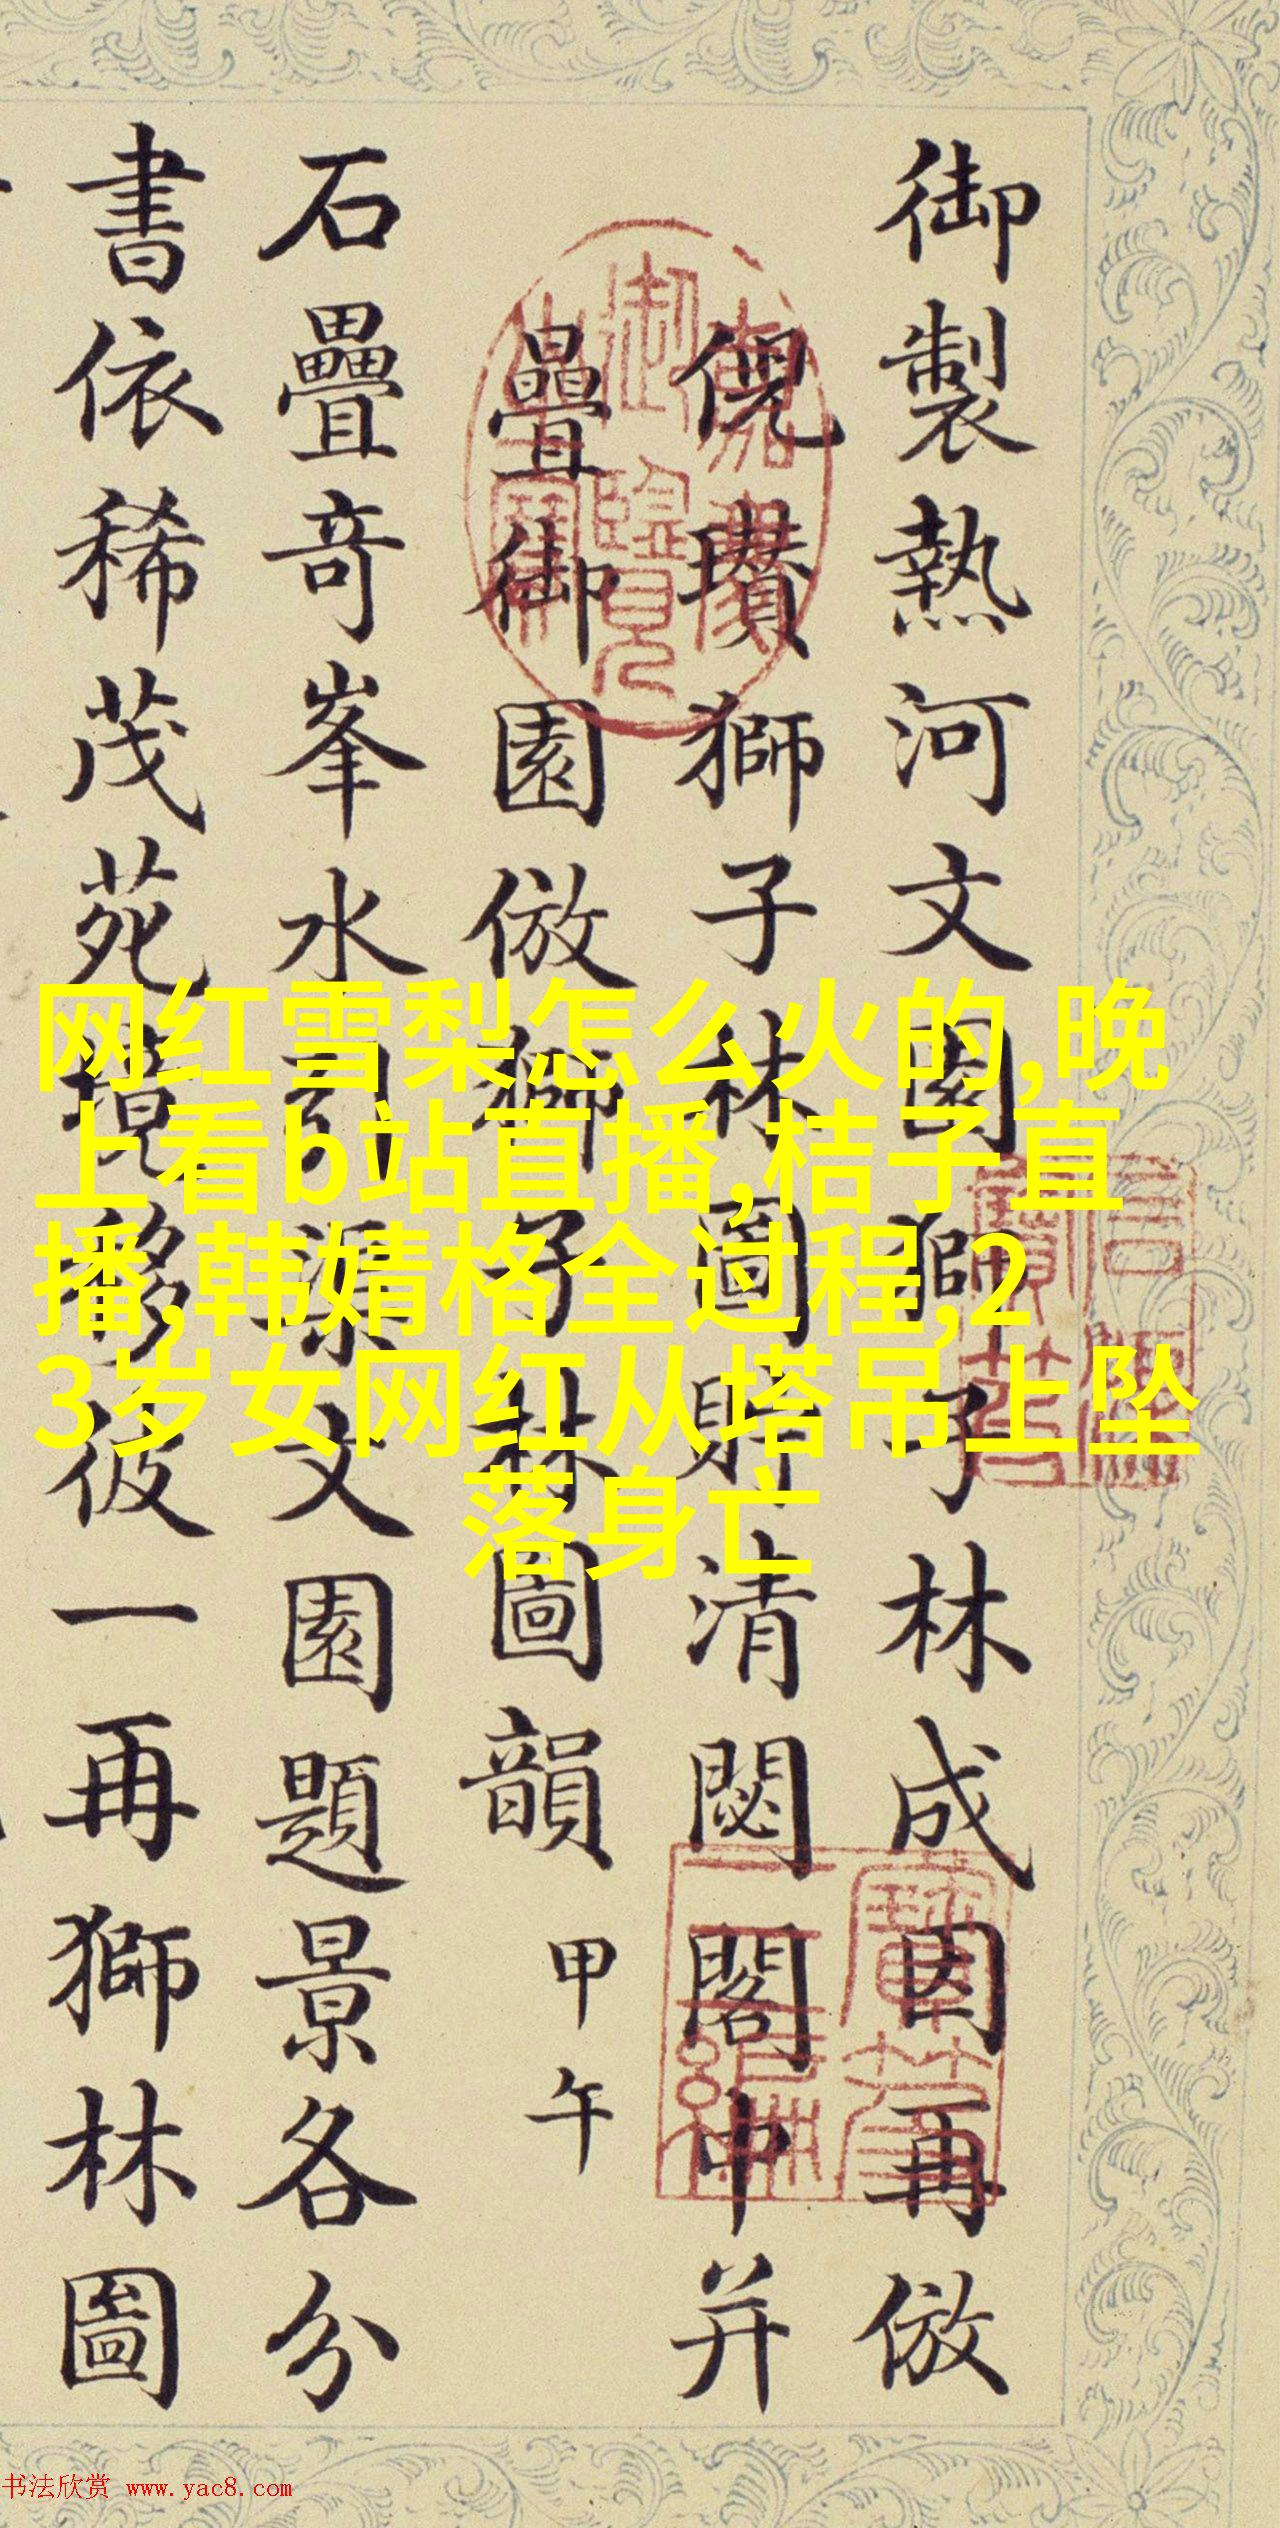 御製熱河文園獅子林成因再倣
倪瓚獅子林圖貯清閟閣中并
疊御園倣獅子林圖韻 甲午
石疊奇峯水引溪文園題景各分
書依稀茂苑境移彼一再獅林圖
网红雪梨怎么火的,晚
上看b站直播,桔子直
播,韩婧格全过程,2
3岁女网红从塔吊上坠
落身亡
书法欣赏 www.yac8.com